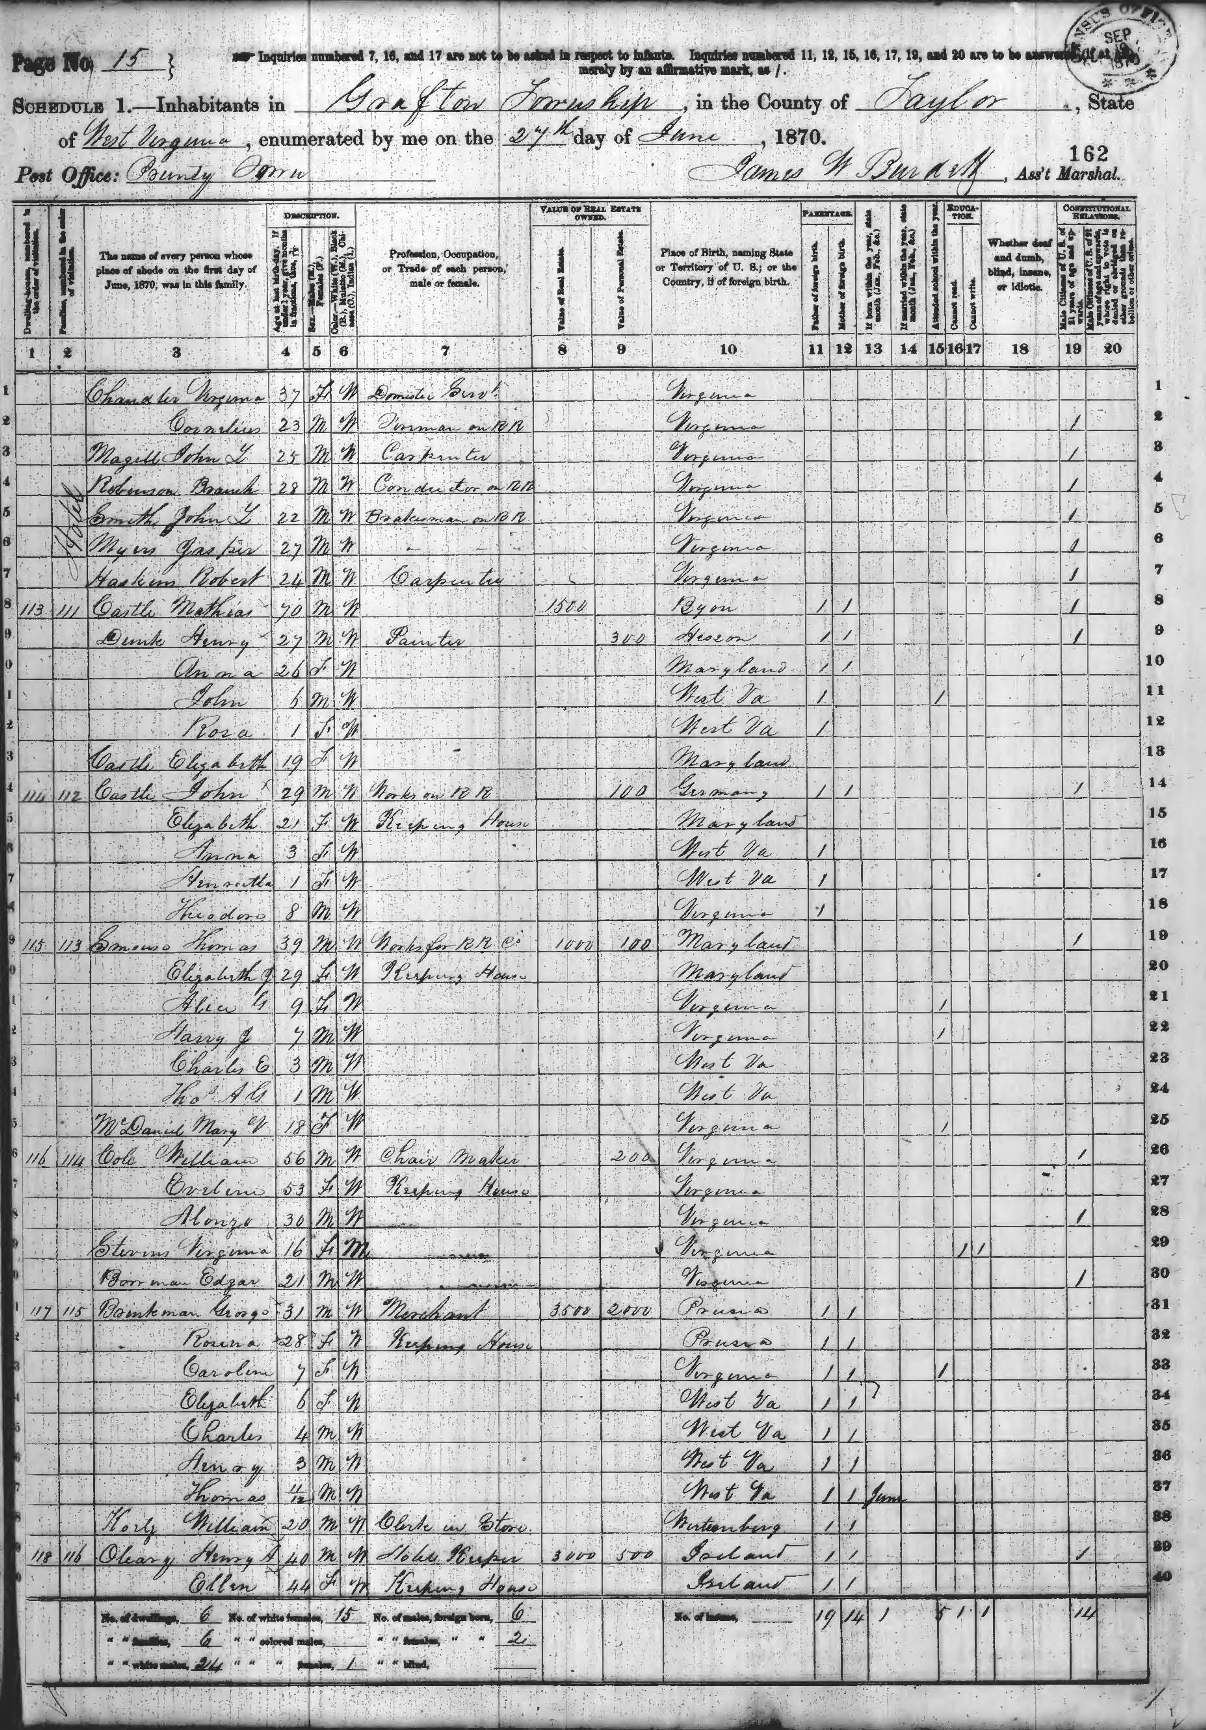 Page No. 15
Inquiries numbered 7, 16, and 17 are not to be asked in respect to infants. Inquiries numbered 11, 12, 15, 16, 17, 19, and 20 are to be answered
merely by an affirmative mark, as /.
SCHEDULE 1.—Inhabitants in Grafton Township, in the County of Taylor, State
of West Virginia, enumerated by me on the 27th day of June, 1870.
162
Post Office: James W Burdett, Ass't Marshal.
DESCRIPTION. VALUE OF REAL ESTATE OWNED. PARENTAGE. EDUCATION. CONSTITUTIONAL RELATIONS.
Dwelling-houses, numbered in the order of visitation.
Families, numbered in the order of visitation.
The name of every person whose place of abode on the first day of June, 1870, was in this family.
Profession, Occupation, or Trade of each person, male or female.
Value of Real Estate.
Value of Personal Estate.
Place of Birth, naming State or Territory of U. S.; or the Country, if of foreign birth.
Father of foreign birth.
Mother of foreign birth.
Attended school within the year.
Cannot read.
Cannot write.
Whether deaf and dumb, blind, insane, or idiotic.
1 2 3 4 5 6 7 8 9 10 11 12 13 14 15 16 17 18 19 20
1 Chandler Virginia 37 F W Domistic Servt. Virginia 1
2 Cornelius 23 M W Fireman on RR Virginia 1 2
3 Magill John L 25 M W Carpenter Virginia 1 3
4 Robinson Branch 28 M W Conductor on RR Virginia 1 4
Hotel
5 Smith John L 22 M W Brakesman on RR Virginia 1 5
6 Myers Jasper 27 M W " " " Virginia 1 6
7 Haskins Robert 24 M W Carpenter Virginia 1 7
8 113 111 Castle Mathias 70 M W 1500 Byon 1 1 1 8
9 Dunk Henry 27 M W Painter 300 Hesson 1 1 1 9
Anna 26 F W Maryland 1 1 10
John 6 M W West Va 1 1 11
Rosa 1 F W West Va 1 12
Castle Elizabeth 19 F W Maryland 13
114 112 Castle John 29 M W Works on RR 100 Germany 1 1 1 14
Elizabeth 21 F W Keeping House Maryland 15
Anna 3 F W West Va 1 16
Henrietta 1 F W West Va 1 17
Theodore 8 M W Virginia 1 18
115 113 Thomas 39 M W Works for RR Co 1000 100 Maryland 1 19
Elizabeth J 29 F W Keeping House Maryland 20
Alice G 9 F W Virginia 1 21
Harry J 7 M W Virginia 1 22
Charles E 3 M W West Va 23
Thos A G 1 M W West Va 24
McDaniel Mary V 18 F W Virginia 1 25
116 114 Cole William 56 M W Chair Maker 200 Virginia 1 26
Eveline 53 F W Keeping House Virginia 27
Alonzo 30 M W Virginia 1 28
Stevens Virginia 16 F M Virginia 1 1 29
Borrman Edgar 21 M W Virginia 1 30
117 115 Brinkman George 31 M W Merchant 3500 2000 Prusia 1 1 31
Rosina 28 F W Keeping House Prusia 1 1 32
Caroline 7 F W Virginia 1 1 1 33
Elizabeth 6 F W West Va 1 1 34
Charles 4 M W West Va 1 1 35
Henry 3 M W West Va 1 1 36
Thomas 11/12 M W West Va 1 1 June 37
William 20 M W Clerk in Store Wirtemberg 1 1 38
118 116 Oleary Henry A 40 M W Hotel Keeper 3000 500 Ireland 1 1 1 39
Ellen 44 F W Keeping House Ireland 1 1 40
No. of dwellings, 6 No. of white females, 15 No. of males, foreign born, 6 No. of insane, 19 14 1 5 1 1 14
" " families, 6 " " colored males, " " females, " " 2
" " white males, 24 " " " females, 1 " " blind,